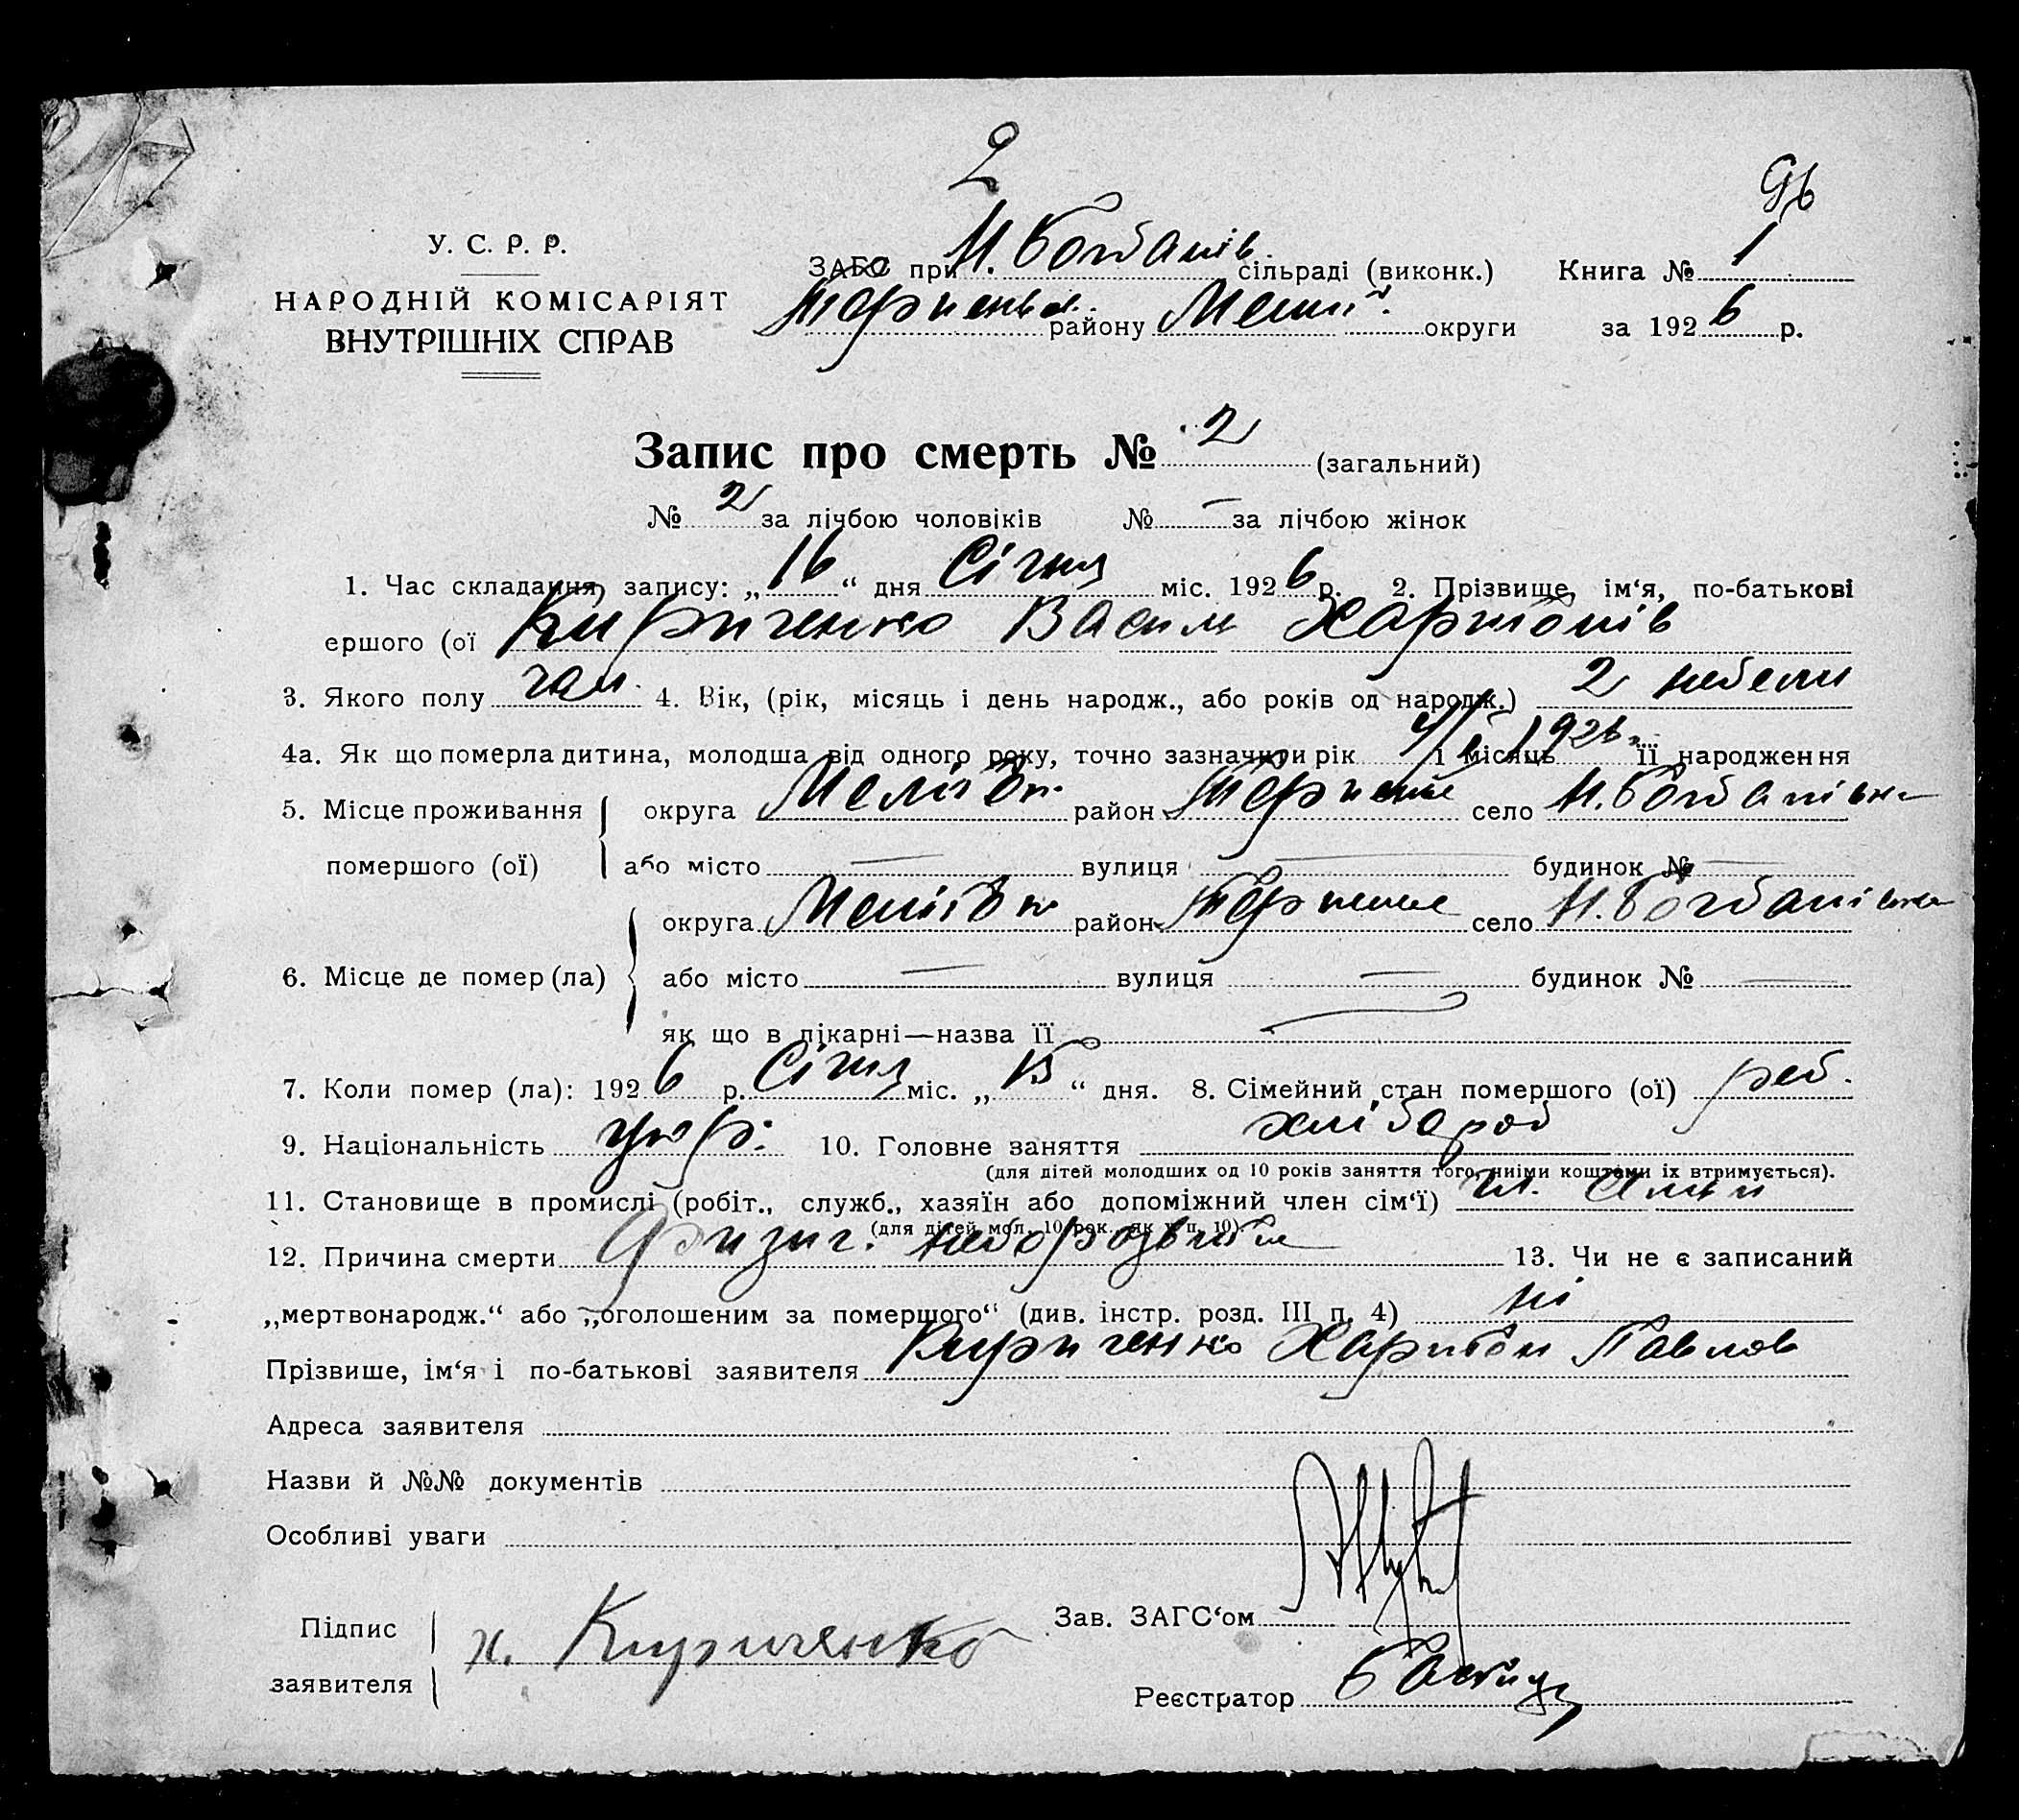 2
96
У. С. Р. Р.
НАРОДНІЙ КОМІСАРІЯТ
ВНУТРІШНІХ СПРАВ
ЗАГС при Н. Богданів. сільраді (виконк.) Книга № 1
району округи за 1926 р.
Запис про смерть № 2 (загальний)
№ 2 за лічбою чоловіків № — за лічбою жінок
1. Час складання запису: „16“ дня Січня міс. 1926 р. 2. Прізвище, ім‘я, по-батькові
ершого (ої Кириченко Василь Харитонів
3. Якого полу чол. 4. Вік, (рік, місяць і день народж., або років од народж.) 2 неделі
4а. Як що померла дитина, молодша від одного року, точно зазначити рік 4/I 1926 р. і місяць її народження
5. Місце проживання округа Меліт. район Терпение село Н. Богданівка
помершого (ої) або місто — вулиця — будинок № —
округа Меліт. район Терпение село Н. Богданівка
6. Місце де помер (ла) або місто — вулиця — будинок № —
як що в лікарні—назва її
7. Коли помер (ла): 1926 р. Січня міс. „15“ дня. 8. Сімейний стан помершого (ої) реб.
9. Національність укр. 10. Головне заняття хлібороб
(для дітей молодших од 10 років заняття того, чиїми коштами іх втримується).
11. Становище в промислі (робіт., служб., хазяїн або допоміжний член сім‘ї) чл. сімьи
(для дітей мол. 10 рок. як у п. 10).
12. Причина смерти Физич. недорозвитие 13. Чи не є записаний
„мертвонародж.“ або „оголошеним за помершого“ (див. інстр. розд. III п. 4) ні
Прізвише, ім‘я і по-батькові заявителя Кириченко Харитон Павлов
Адреса заявителя
Назви й №№ документів
Особливі уваги
Підпис
заявителя Х. Кириченко
Зав. ЗАГС‘ом
Реєстратор